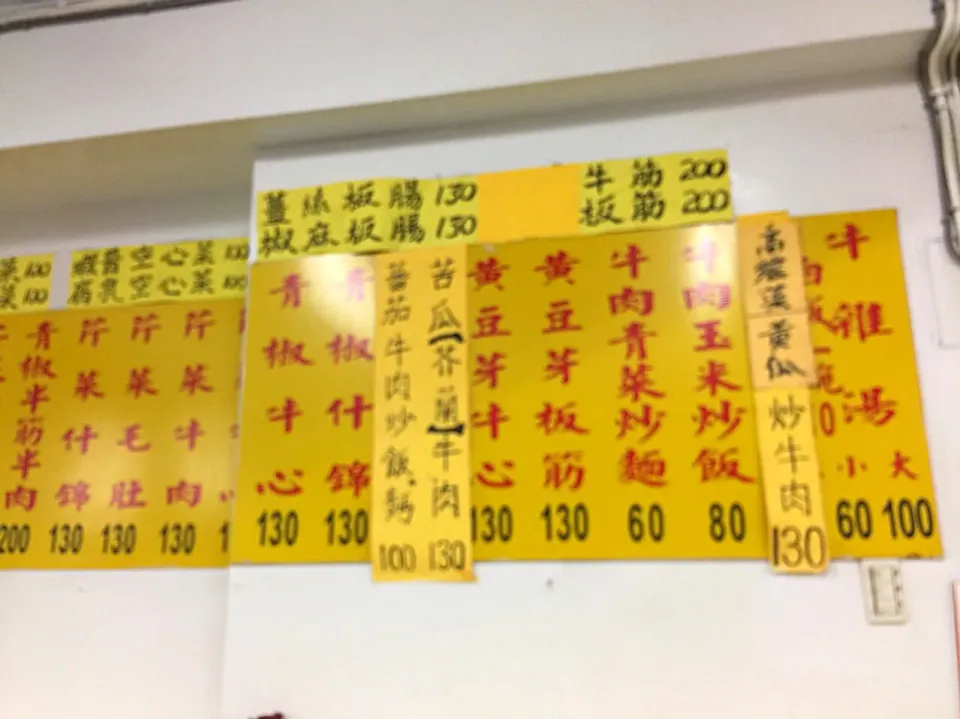 薑絲板腸130
椒麻板腸130
牛筋200
板筋200
菜100
菜100
蝦醬空心菜100
腐乳空心菜100
青椒半筋半肉200
芹菜什錦130
芹菜毛肚130
芹菜牛肉130
青椒牛心130
青椒什錦130
蕃茄牛肉炒飯.麵100
苦瓜【芥菌】牛肉130
黃豆芽牛心130
黃豆芽板筋130
牛肉青菜炒麵60
牛肉玉米炒飯80
黃瓜炒牛肉130
牛雜湯
小60
大100